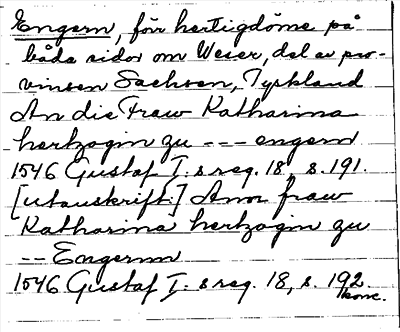 Engern, förr hertigdöme på
båda sidor om Weser, del av pro-
vinsen Sachsen, Tyskland
An die Fraw Katharina
hertzogin zu --- engern
1546 Gustaf I:s reg. 18, s. 191.
[utanskrift:] Ann fraw
Katharina hertzogin zu
-- Engernn
1546 Gustaf I:s reg. 18, s. 192
konc.